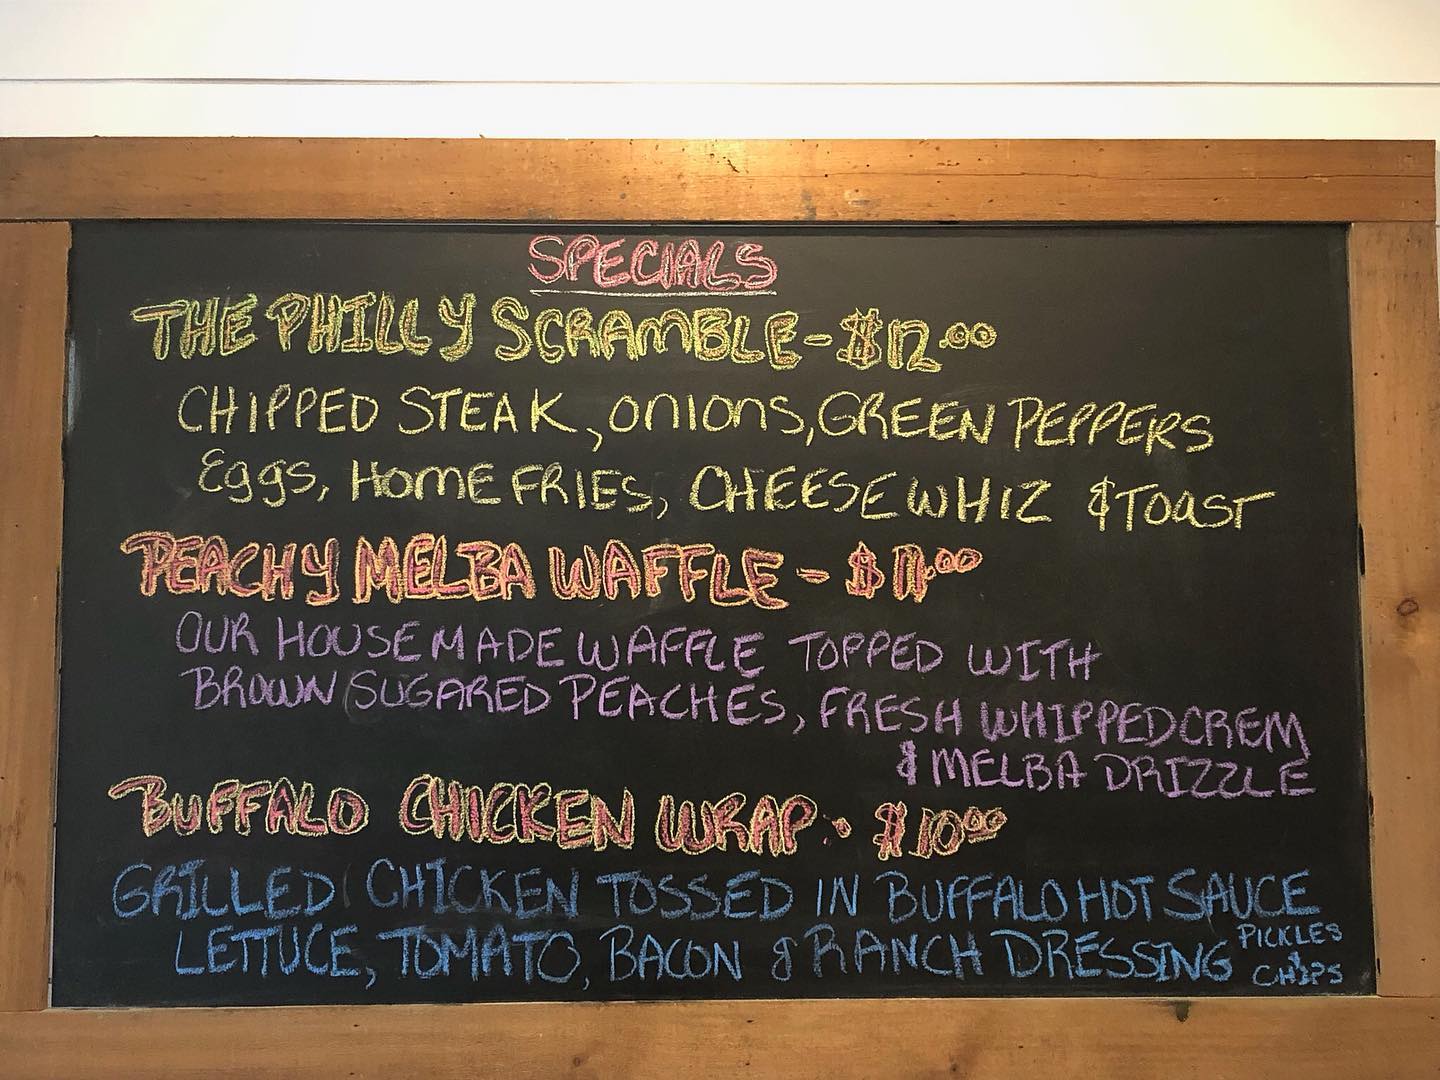 SPECIALS
THE PHILLY SCRAMBLE - $12.00
CHIPPED STEAK, ONIONS, GREEN PEPPERS
Eggs, HOME FRIES, CHEESE WHIZ & TOAST
PEACHY MELBA WAFFLE - $11.00
OUR HOUSEMADE WAFFLE TOPPED WITH
BROWN SUGARED PEACHES, FRESH WHIPPED CREM
& MELBA DRIZZLE
BUFFALO CHICKEN WRAP - $10.00
GRILLED CHICKEN TOSSED IN BUFFALO HOT SAUCE
LETTUCE, TOMATO, BACON & RANCH DRESSING
PICKLES
&
CHIPS